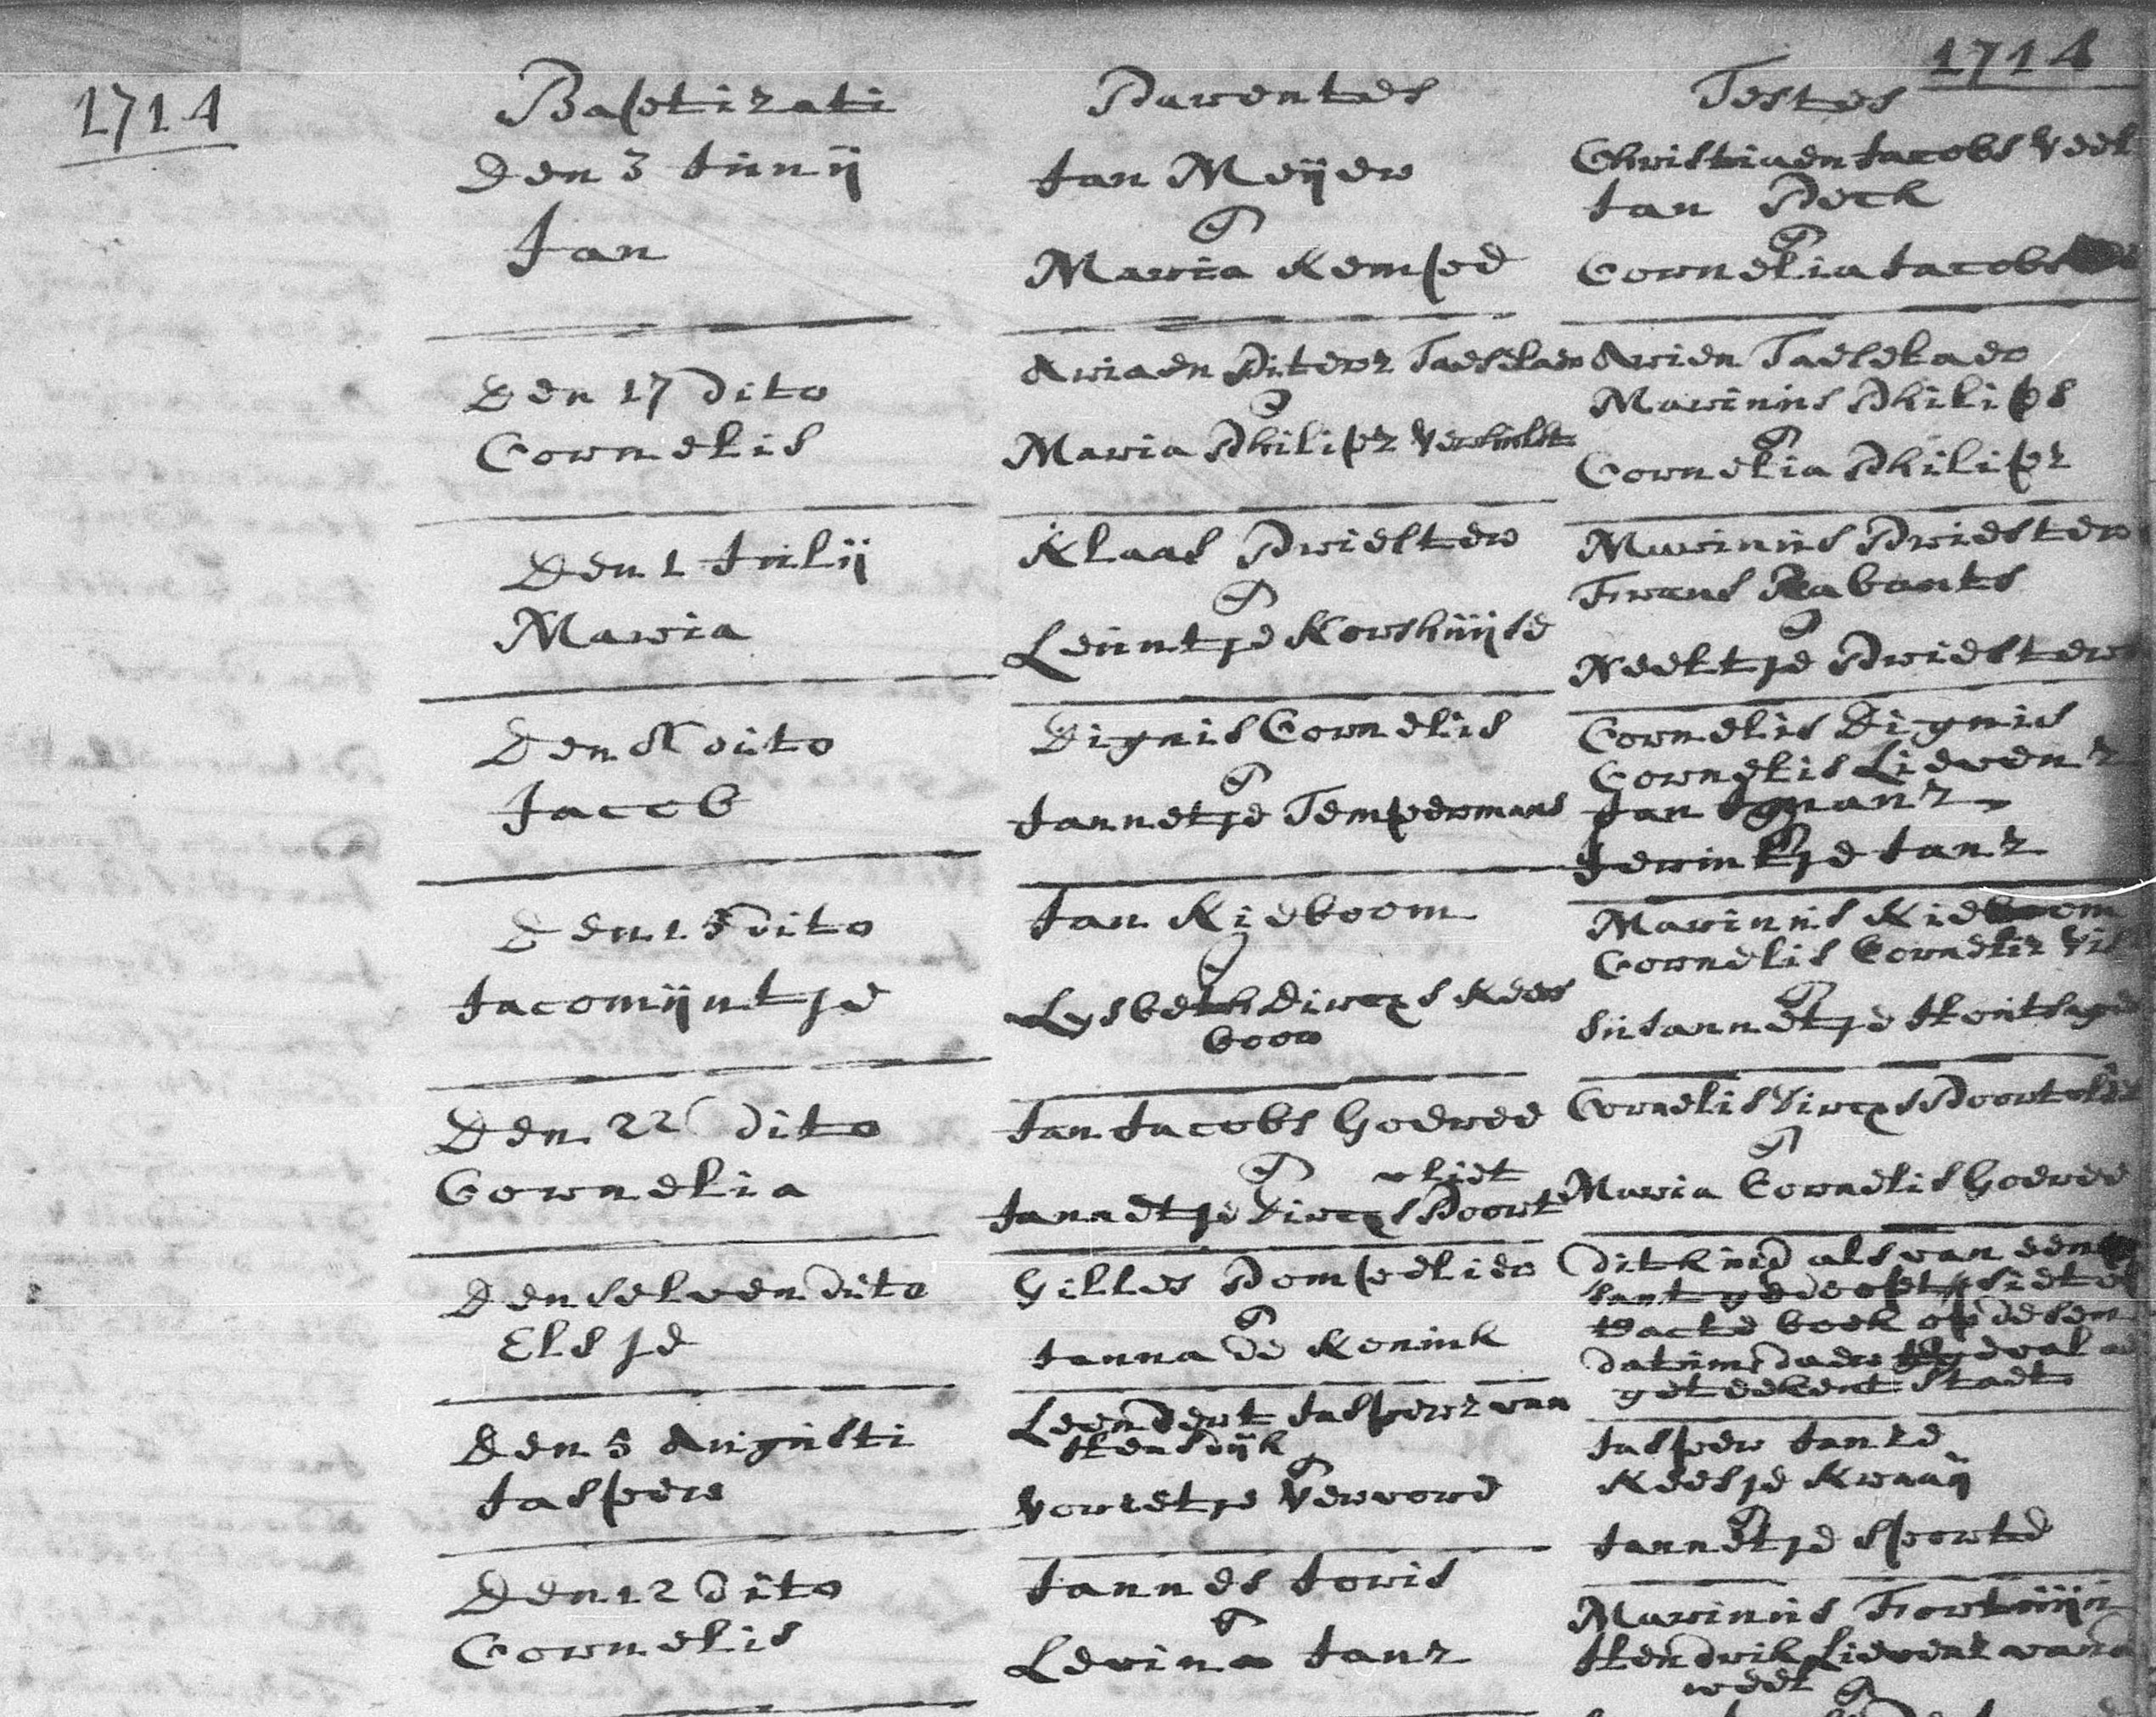 1714
1714
Baptizati
Parentes
Testes
Den 3 Junij
Jan
Jan Meijer
&
Maria Kempe
Christiaen Jacobs Veel
Jan Peck
&
Cornelia Jacobs
Den 17 dito
Cornelis
Ariaen Piterz Taeselaer
&
Maria Philipz Verhulst
Arien Taeselaer
Marinus Philips
&
Cornelia Philipz
Den 1 Julij
Maria
Klaas Priester
&
Leuntje Korshuijse
Marinus Priester
Frans Rabants
&
Neeltje Priesters
Den 8 dito
Jacob
Dignis Cornelis
&
Jannetje Tempermans
Cornelis Dignis
Cornelis Lievenz
Jan
&
Jewintje Janz
Den 15 dito
Jacomijntje
Jan Kieboom
&
Lysbeth Dircxs Kees
boor
Marinus Kieboom
Cornelis Cornelisz Vis
&
Susannetje
Den 22 dito
Cornelia
Jan Jacobs Goeree
&
vliet
Jannetje Dircxs Poort
Cornelis Dircxs Poortvliet
&
Maria Cornelis Goeree
Den selven dito
Elsje
Gilles Pompelier
&
Janna de Konink
Dit kind als van een
sant gedoopt siet
Backe boek op desen
datum daer geval
geteekent staet
Den 5 Augusti
Jasper
Leendert Jasperz van
Hensdijk
&
Vorsetje Verword
Jasper Janse
Keesje Kraaij
&
Jannetje Spoorte
Den 12 dito
Cornelis
Jannes Joris
&
Levina Janz
Marinus Fortuijn
Hendrik Lievenz
weel
&